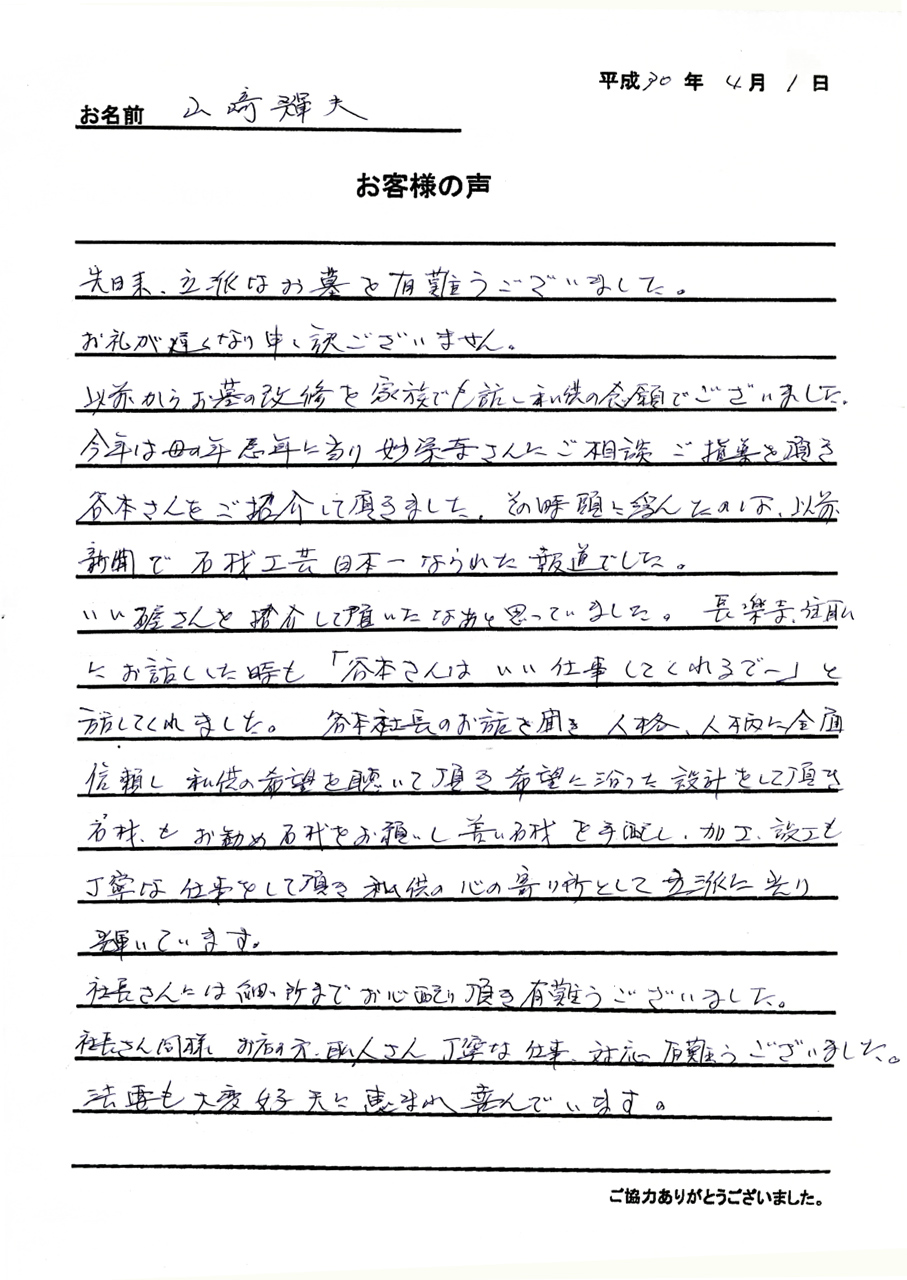 平成30年 4月 1日
お名前 山﨑輝夫
お客様の声
先日来、立派なお墓を有難うございました。
お礼が遅くなり申し訳ございません。
以前からお墓の改修を家族で話し私供の念願でございました。
今年は母の年忌年に当り妙栄寺さんにご相談ご指導を頂き
谷本さんをご紹介して頂きました。その時頭に浮んだのは、以前
新聞で石材工芸日本一なられた報道でした。
いい石屋さんを紹介して頂いたなあと思っていました。長楽寺、住職
にお話しした時も「谷本さんは いい仕事してくれるでー」と
話してくれました。 谷本社長のお話を聞き 人格、人柄に全面
信頼し 私供の希望を聴いて頂き希望に沿った設計をして頂き
石材、もお勧め石材をお願いし善い石材を手配し、加工、設工も
丁寧な仕事をして頂き私供の心の寄り所として立派に光り
輝いています。
社長さんには細い所までお心配り頂き有難うございました。
社長さん同様 お店の方、職人さん 丁寧な仕事、対応 有難うございました。
法要も大変好天に恵まれ喜んでいます。
ご協力ありがとうございました。